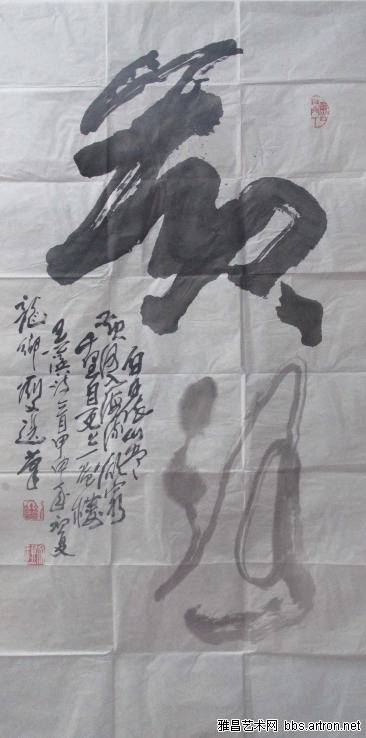 黄河
白日依山尽
黄河入海流欲穷
千里目更上一层楼
王之涣诗一首甲申年初夏
龍鄉劉
雅昌艺术网 bbs.artron.net